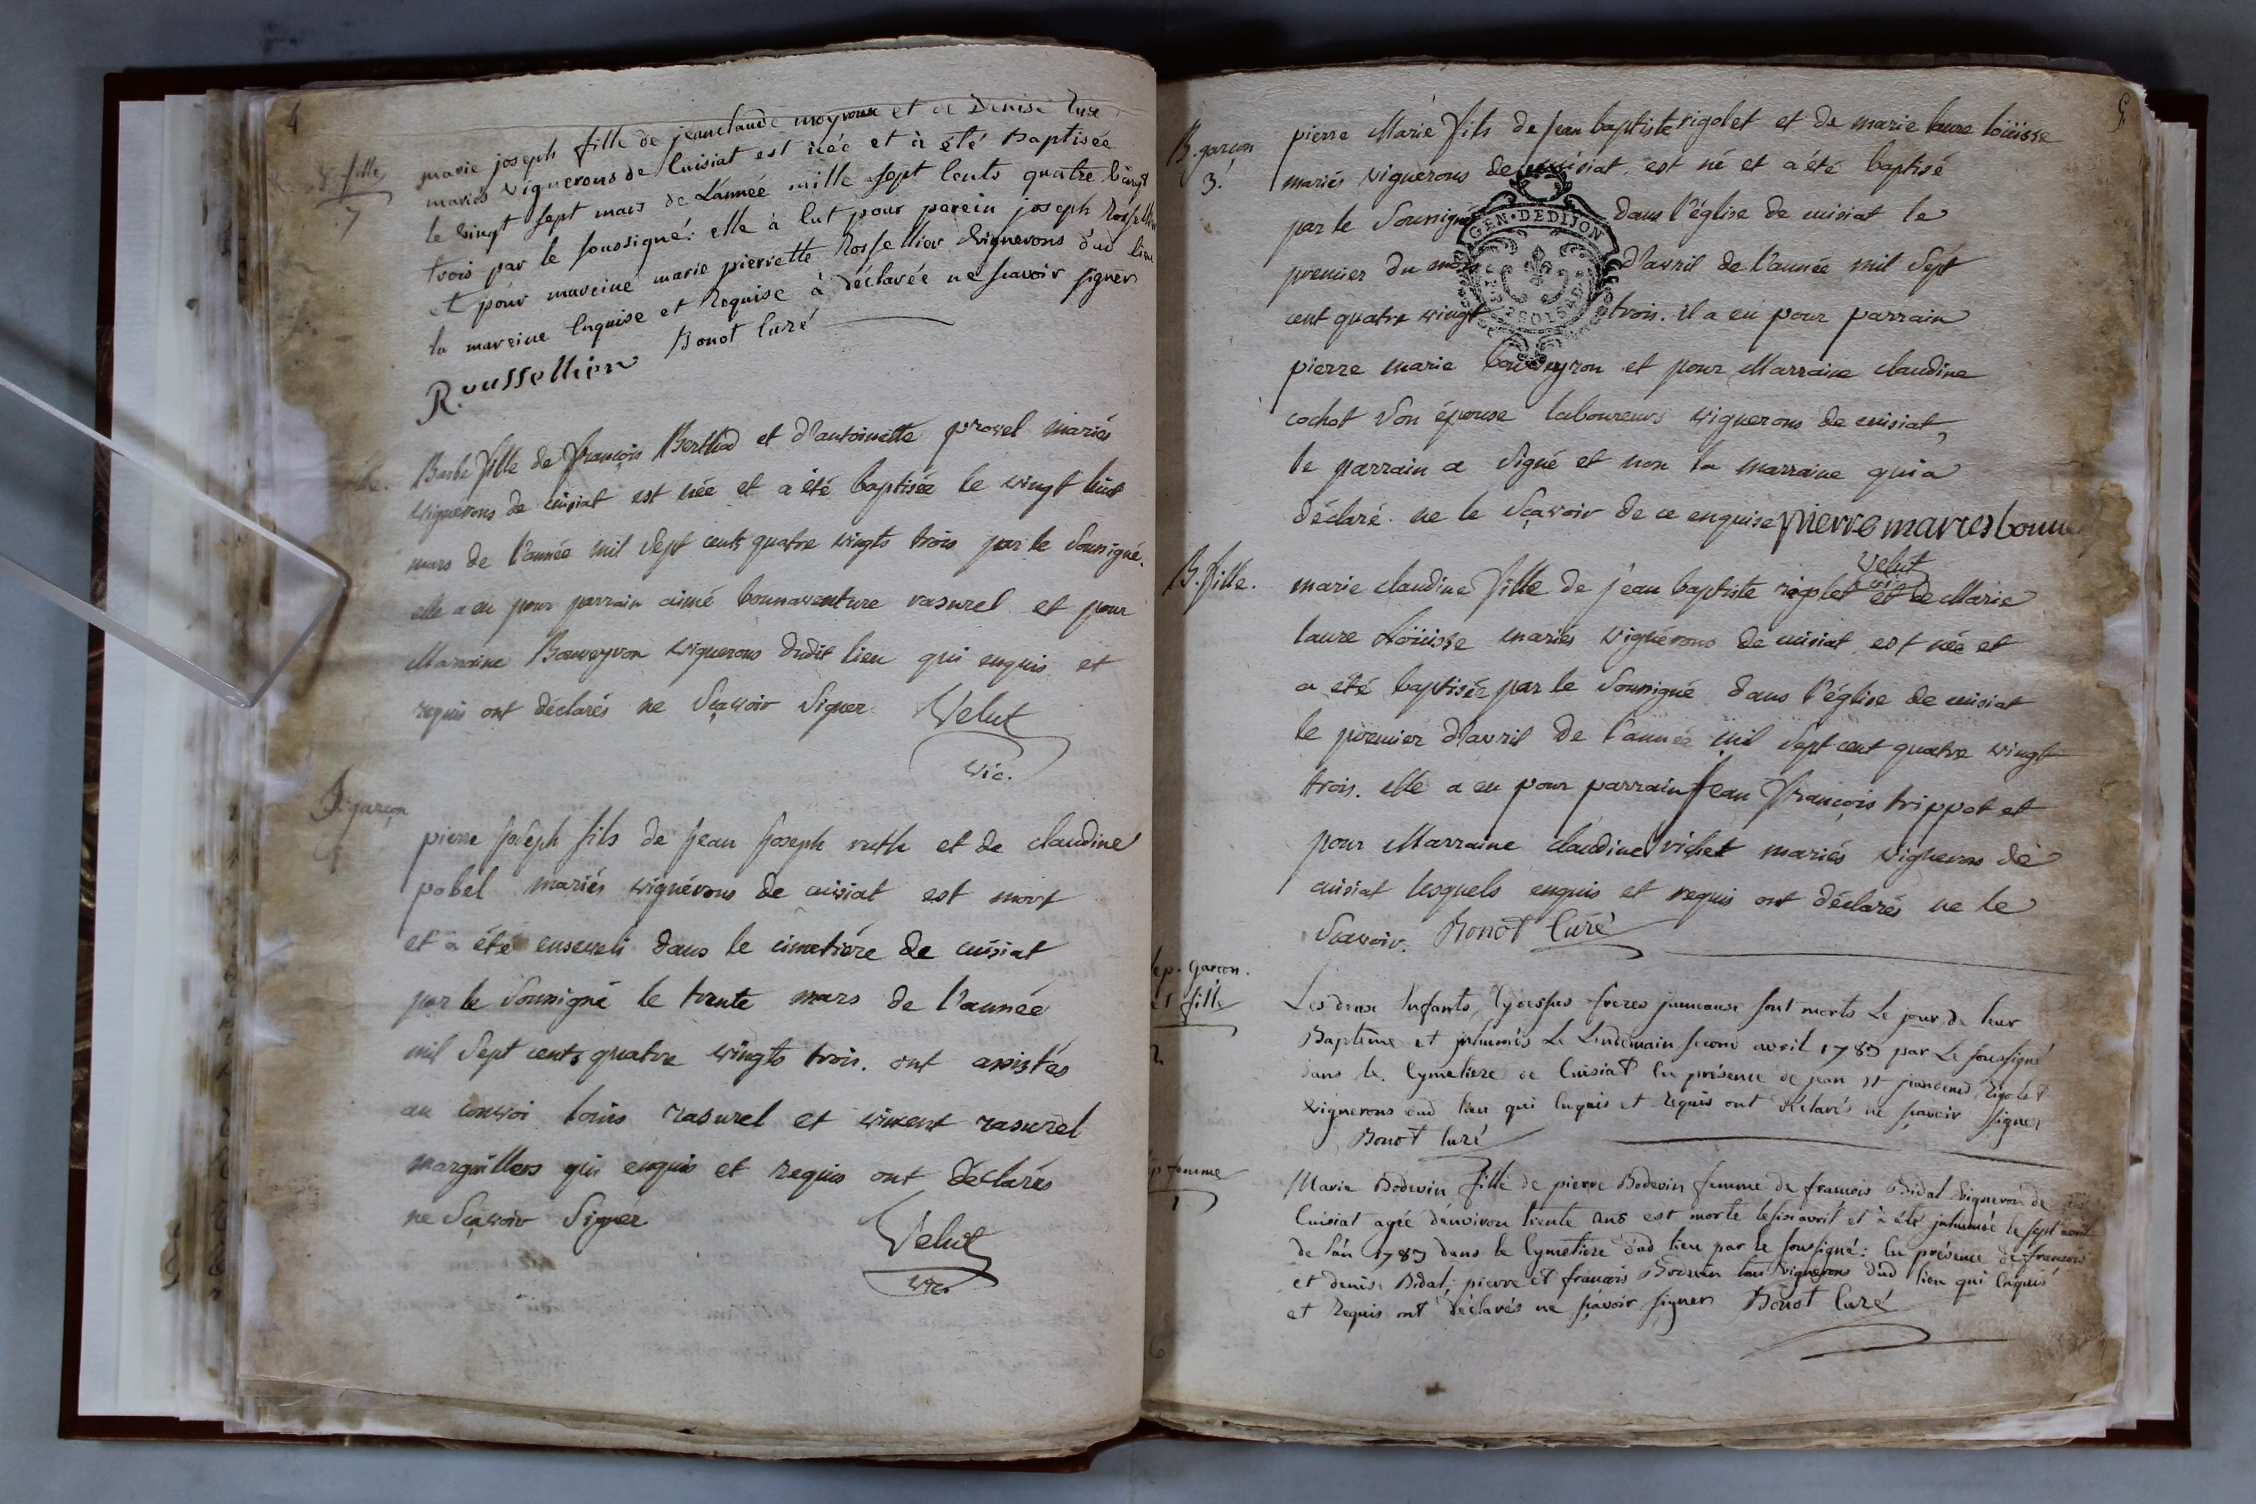 4
B. fille
7
marie joseph fille de jeanclaude moyroux et de Denise
mariés vignerons de Cuisiat est née et à été Baptisée
le vingt sept mars de L'année mille sept Cents quatre vingt
trois par le soussigné: elle à Eut pour parein joseph
et pour mareine marie pierrette Rossellier vignerons dud lieu
la marreine Enquise et Requise à déclarée ne scavoir signer
Roussellier Bonot Curé
Barbe fille de françois Berthod et d'antoinette provel mariés
vignerons de cuisiat est née et a été baptisée le vingt huit
mars de l'année mil sept cents quatre vingts trois par le soussigné.
elle a eu pour parrain aimé bonnaventure rasurel et pour
Marraine Bouveyron vignerons dudit lieu qui enquis et
requis ont déclarés ne sçavoir signer. Velut
vic.
garçon
pierre joseph fils de jean joseph ruth et de claudine
pobel mariés vignérons de cuisiat est mort
et a été enseveli dans le cimetière de cuisiat
par le soussigné le trente mars de l'année
mil sept cents quatre vingts trois. ont assistés
au convoi louis rasurel et vincent rasurel
marguilliers qui enquis et requis ont déclarés
ne sçavoir signer Velut
vic.
5
B. garçon
3.
pierre Marie fils de jean baptiste rigolet et de marie laure loüisse
mariés vignerons de cuisiat. est né et a été baptisé
par le soussigné dans l'église de cuisiat le
premier du mois d'avril de l'année mil sept
cent quatre vingt trois. il a eu pour parrain
GEN·DE DIJON
pierre marie bouveyron et pour Marraine claudine
cochet son épouse laboureurs vignerons de cuisiat,
le parrain a signé et non la marraine qui a
déclaré ne le sçavoir de ce enquise pierre marie bouve
Velut
vic.
B. fille.
marie claudine fille de jean baptiste rigolet et de Marie
laure Loüisse mariés vignérons de cuisiat est née et
a été baptisée par le soussigné dans l'église de cuisiat
le premier d'avril de l'année mil sept cent quatre vingt
trois. elle a eu pour parrain jean françois trippot et
pour Marraine claudine vichet mariés vignerons de
cuisiat lesquels enquis et requis ont déclarés ne le
sçavoir. Bonot Curé
sep. garçon.
et fille
2
Les deux Enfants Cydessus freres jumeaux sont morts Le jour de leur
Baptême et inhumés Le Lendemain second avril 1783 par Le soussigné
dans le Cymetiere de Cuisiat En présence de jean et Rigolet
vignerons dud lieu qui Enquis et Requis ont déclarés ne sçavoir signer
Bonot Curé
sep femme
1
Marie Bodevin fille de pierre Bodevin femme de francois Bidal vigneron de
Cuisiat agée d'environ trente ans est morte le six avril et à été inhumée le sept avril
de l'an 1783 dans le Cymetiere dud lieu par le soussigné: En présence de francois
et denis Bidal, pierre et francois Bodevin tous vignerons dud lieu qui Enquis
et Requis ont déclarés ne sçavoir signer Bonot Curé